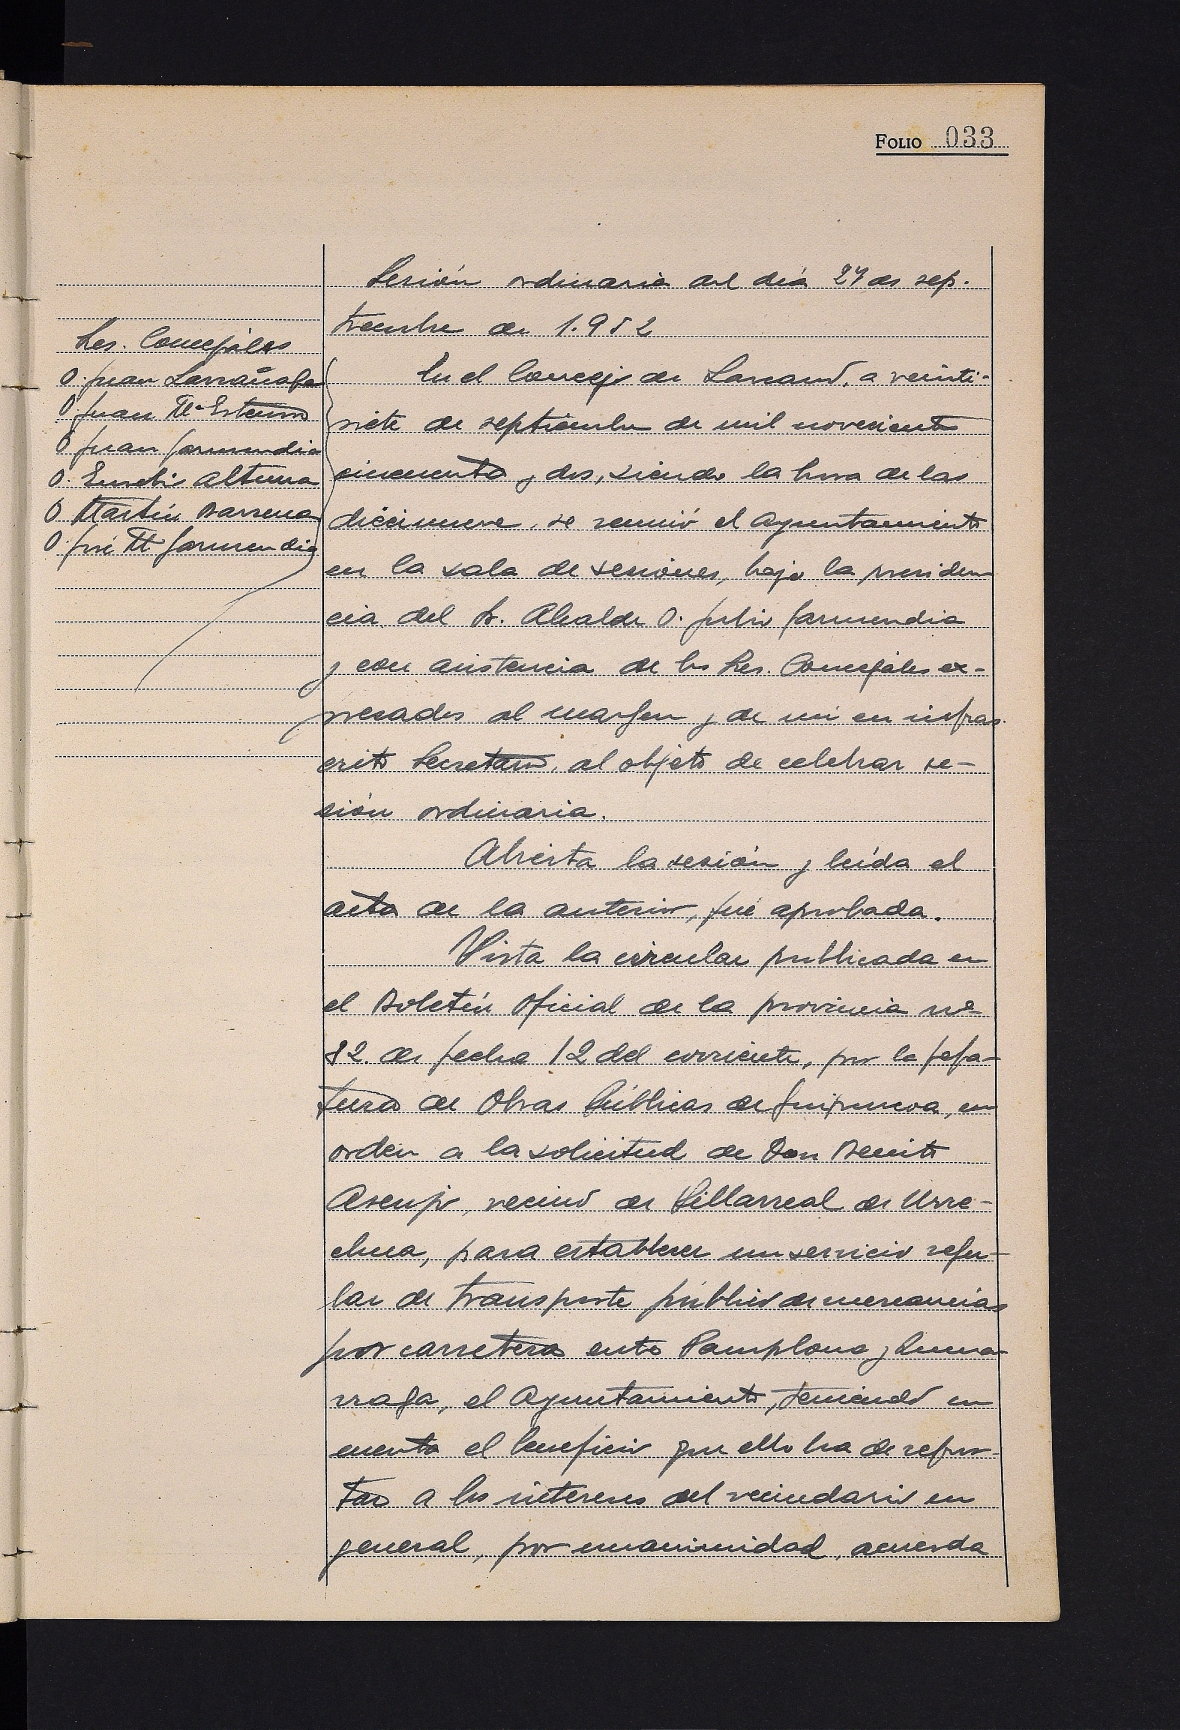 FOLIO 033
Sesión ordinaria del día 27 de sep-
tiembre de 1.952
Sres. Concejales
D. Juan Larrañaga
D. Juan Mª Esturo
D. Juan Garmendia
D. Eusebio Altuna
D. Martín Barrena
D. José Mª Garmendia
En el Concejo de Lazcano, a veinti-
siete de septiembre de mil novecientos
cincuenta y dos, siendo la hora de las
diecinueve, se reunió el Ayuntamiento
en la sala de sesiones, bajo la presiden
cia del Sr. Alcalde D. Julio Garmendia
y con asistencia de los Sres. Concejales ex-
presados al margen y de mi en infras-
crito Secretario, al objeto de celebrar se-
sión ordinaria.
Abierta la sesión y leída el
acta de la anterior, fué aprobada.
Vista la circular publicada en
el Boletín Oficial de la provincia nº
82 de fecha 12 del corriente, por la Jefa-
tura de Obras Públicas de Guipuzcoa, en
orden a la solicitud de Don Benito
Asenjo, vecino de Villarreal de Urre-
chua, para establecer un servicio regu-
lar de transporte público de mercancías
por carretera entre Pamplona y Zuma-
rraga, el Ayuntamiento, teniendo en
cuenta el beneficio que ello ha de repor-
tar a los intereses del vecindario en
general, por unanimidad, acuerda